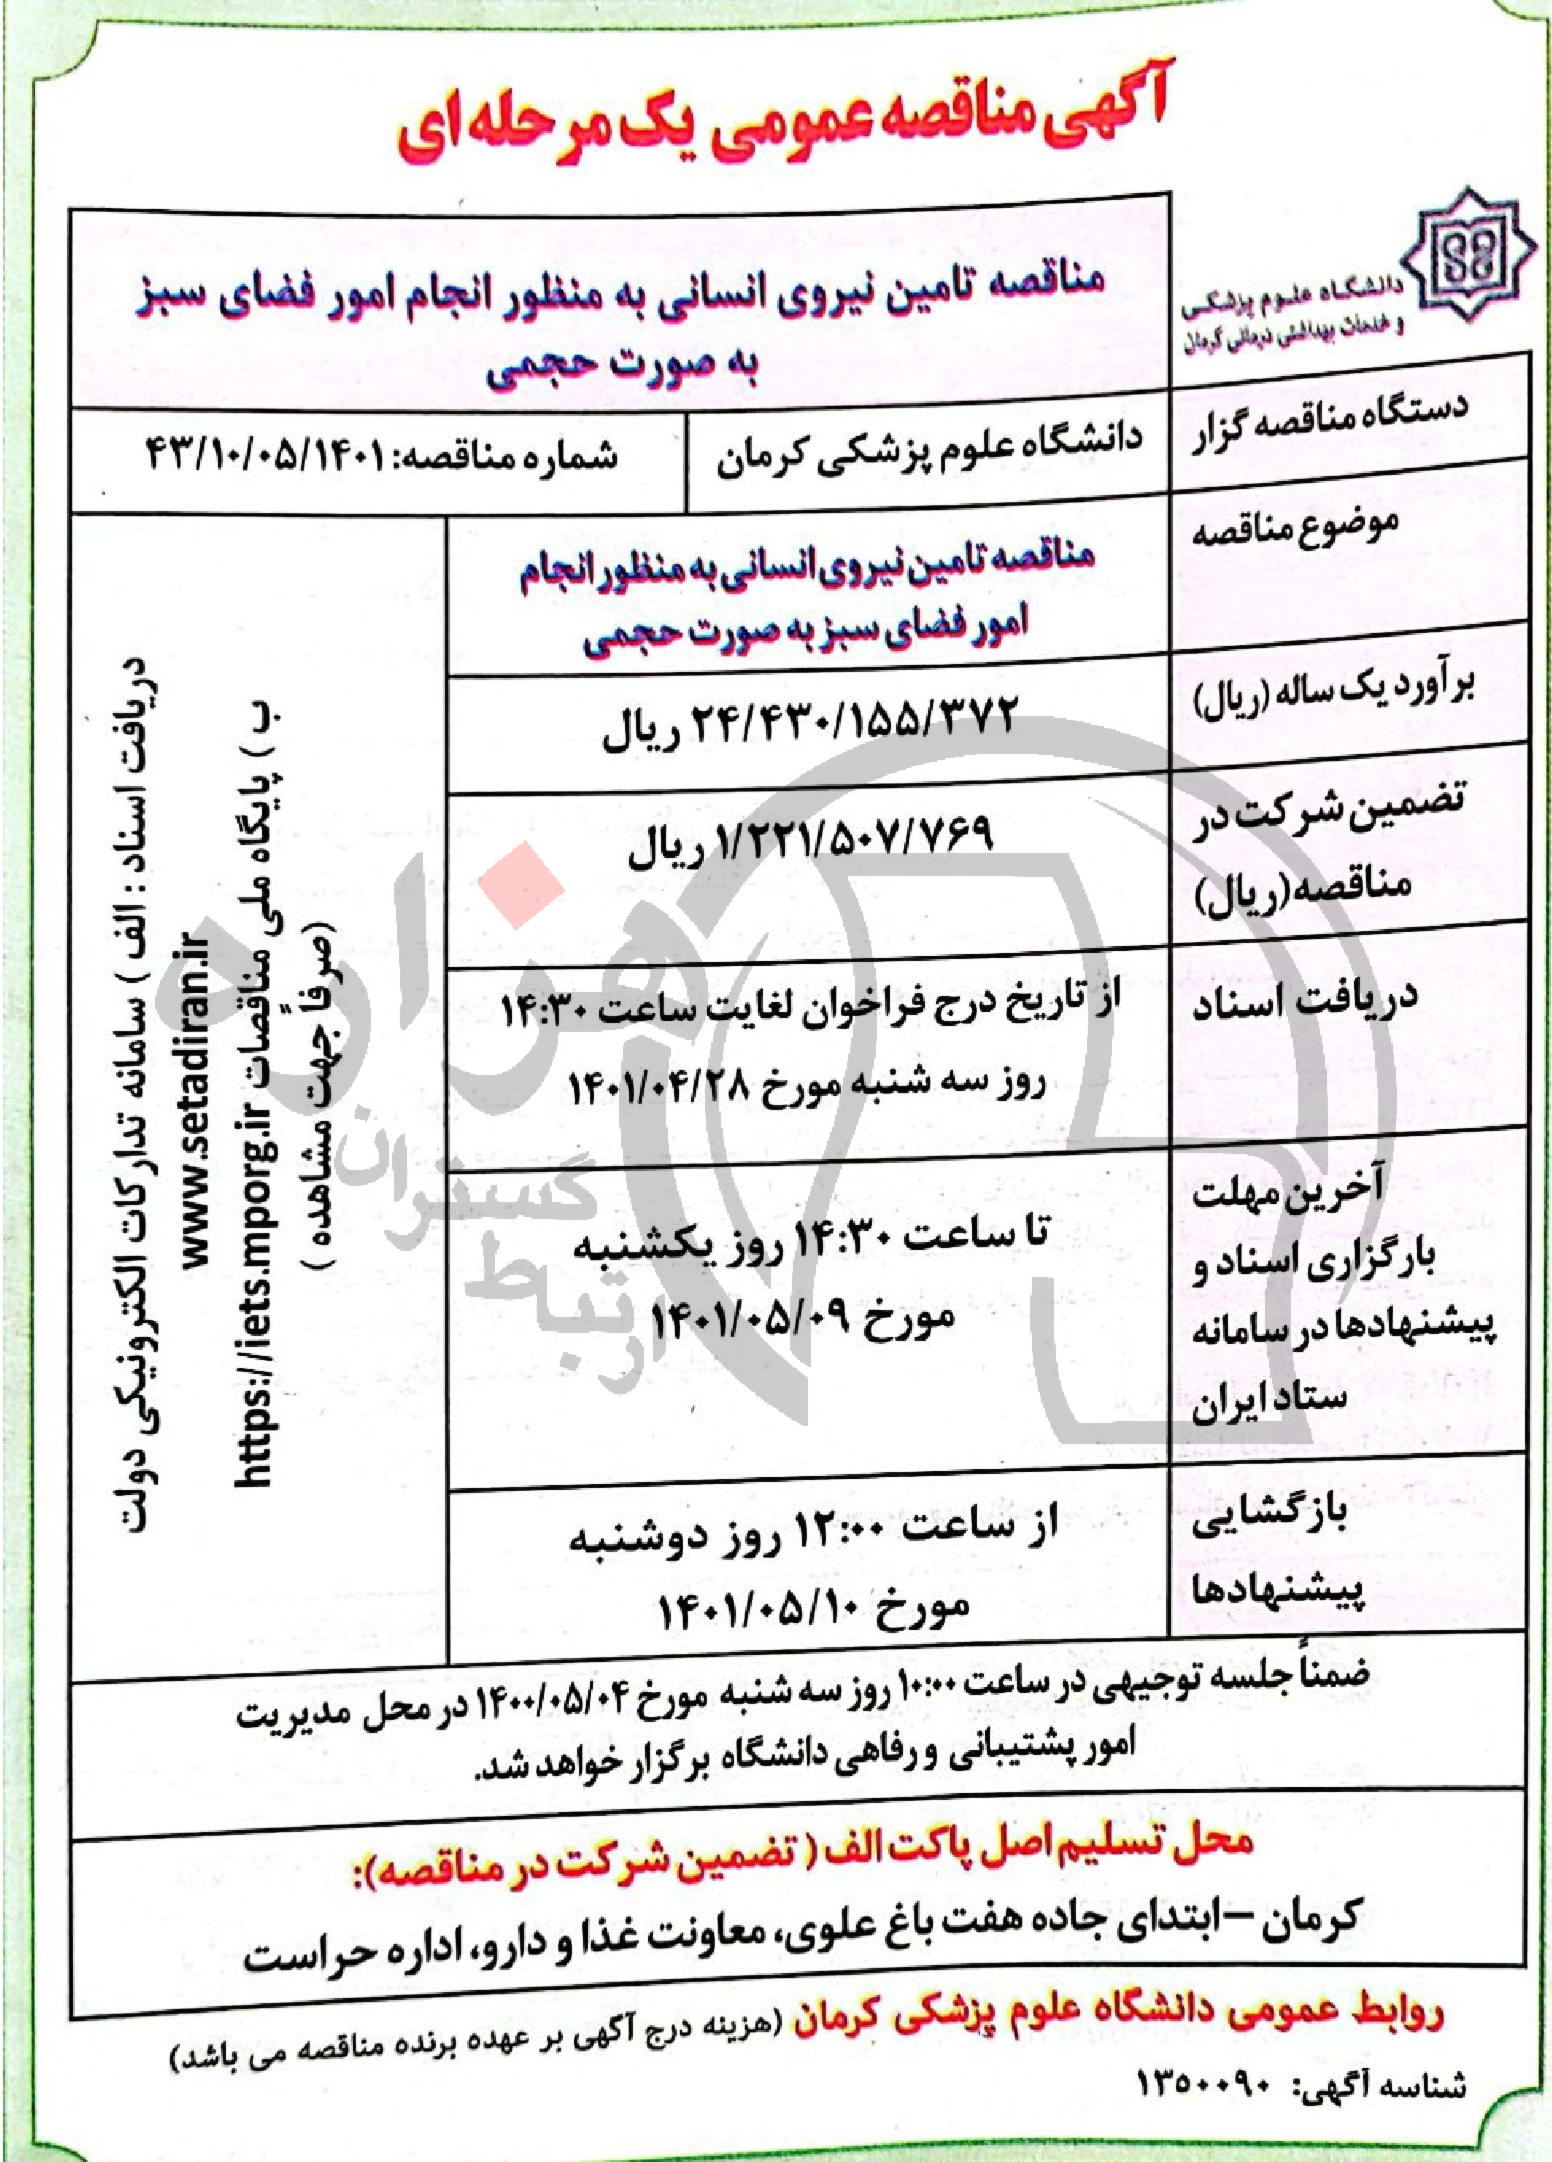 آگهی مناقصه عمومی یک مرحله ای
دانشگاه علوم پزشکی
و خدمات بهداشتی درمانی کرمان
مناقصه تامین نیروی انسانی به منظور انجام امور فضای سبز
به صورت حجمی
دستگاه مناقصه گزار
دانشگاه علوم پزشکی کرمان
شماره مناقصه: ۴۳/۱۰/۰۵/۱۴۰۱
موضوع مناقصه
مناقصه تامین نیروی انسانی به منظور انجام
امور فضای سبز به صورت حجمی
برآورد یک ساله (ریال)
۲۴/۴۳۰/۱۵۵/۳۷۲ ریال
تضمین شرکت در
مناقصه (ریال)
۱/۲۲۱/۵۰۷/۷۶۹ ریال
دریافت اسناد
از تاریخ درج فراخوان لغایت ساعت ۱۴:۳۰
روز سه شنبه مورخ ۱۴۰۱/۰۴/۲۸
آخرین مهلت
بارگزاری اسناد و
پیشنهادها در سامانه
ستاد ایران
تا ساعت ۱۴:۳۰ روز یکشنبه
مورخ ۱۴۰۱/۰۵/۰۹
بازگشایی
پیشنهادها
از ساعت ۱۲:۰۰ روز دوشنبه
مورخ ۱۴۰۱/۰۵/۱۰
دریافت اسناد : الف ) سامانه تدارکات الکترونیکی دولت
www.setadiran.ir
ب ) پایگاه ملی مناقصات https://iets.mporg.ir
(صرفاً جهت مشاهده )
هزاره
گستران
ارتباط
ضمناً جلسه توجیهی در ساعت ۱۰:۰۰ روز سه شنبه مورخ ۱۴۰۰/۰۵/۰۴ در محل مدیریت
امور پشتیبانی و رفاهی دانشگاه برگزار خواهد شد.
محل تسلیم اصل پاکت الف ( تضمین شرکت در مناقصه):
کرمان –ابتدای جاده هفت باغ علوی، معاونت غذا و دارو، اداره حراست
روابط عمومی دانشگاه علوم پزشکی کرمان (هزینه درج آگهی بر عهده برنده مناقصه می باشد)
شناسه آگهی: ۱۳۵۰۰۹۰